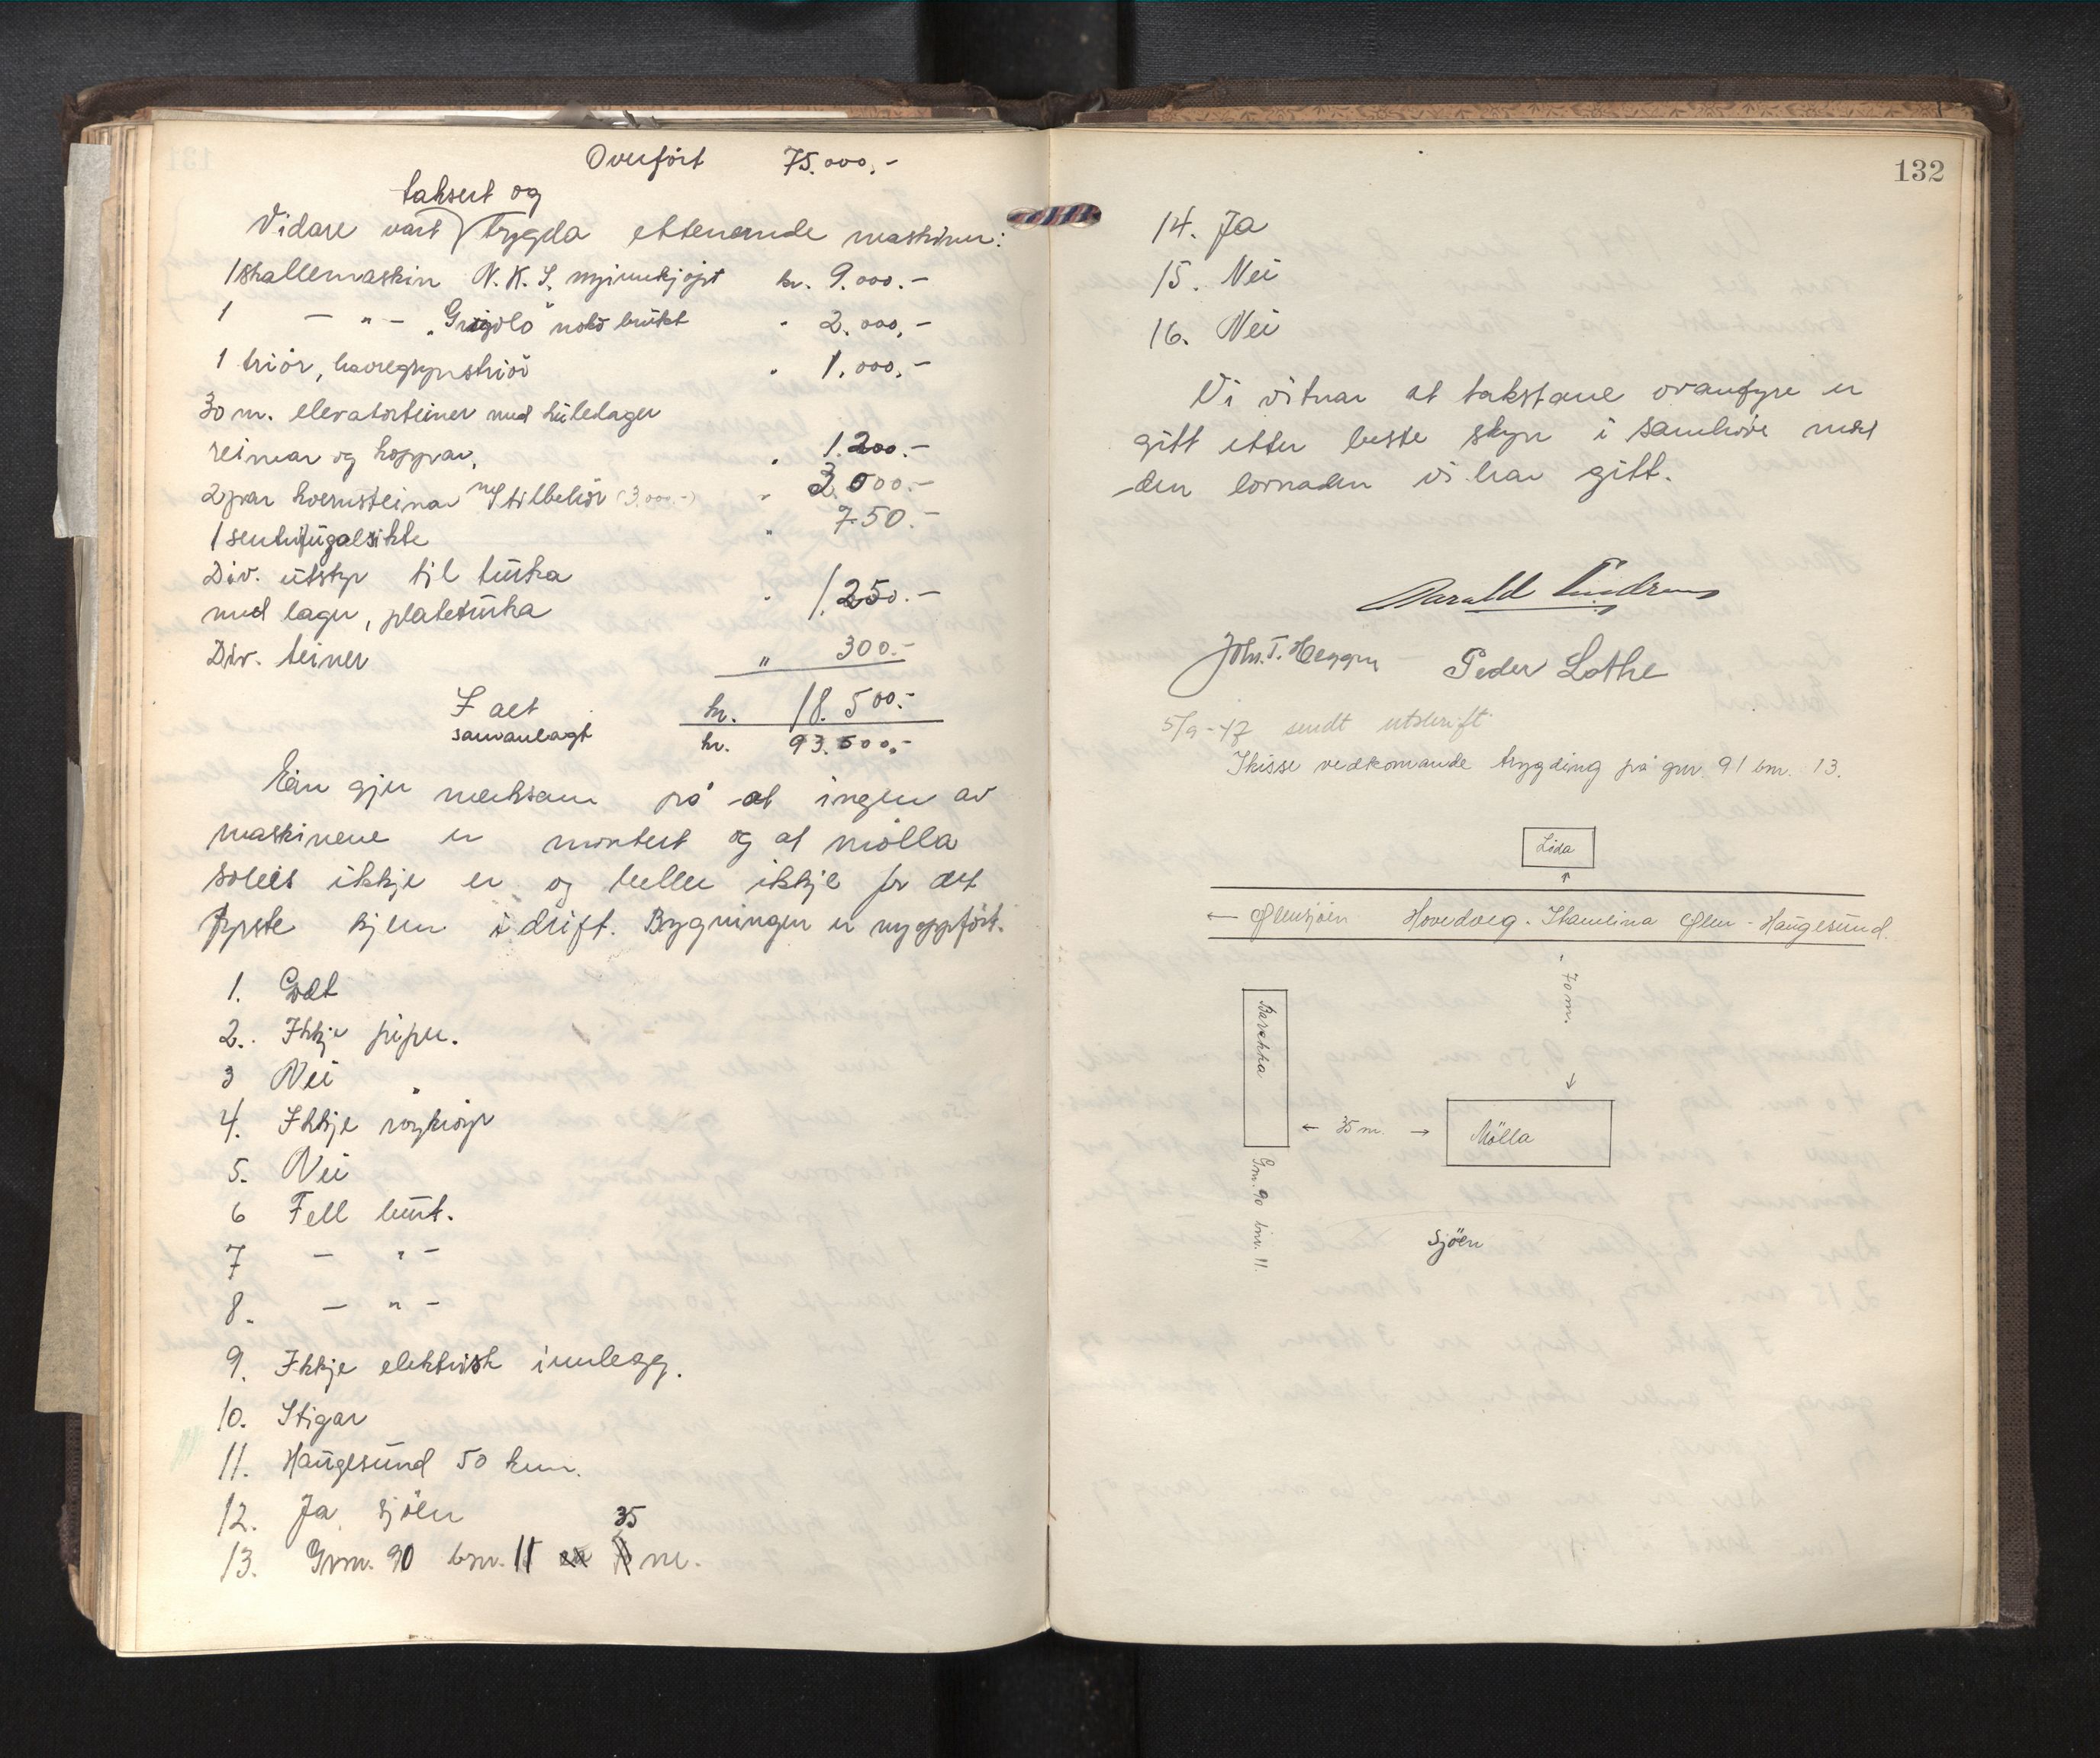 Overført 75.000,-
taksert og
Vidare vart trygda etternemde maskiner:
1 skallemaskin N.K.S. nyinnkjøpt kr. 9.000.-
1 - " - "Grigolo" noko brukt " 2.000,-
1 triør, havregrynstriør " 1.000,-
30 m. elevatorteiner med kulelager
reimar og koppar, " 1.200.-
2 par kvernsteinar m/tilbehør (3.000.-) " 3.000.-
1 sentrifugalsikte " 750.-
Div. utstyr til turka
med lager, plateturka " 1.250.-
Div. teiner " 300.-
I alt kr. 18.500.-
samanlagt kr. 93.500,-
Ein gjer merksam på at ingen av
maskinene er montert og at mølla
soleis ikkje er og heller ikkje for det
fyrste kjem i drift. Bygningen er nyoppført.
1. Godt
2. Ikkje pipe.
3 Nei
4. Ikkje røykrøyr
5. Nei
6 Fell burt.
7 - " -
8. - " -
9. Ikkje elektrisk innlegg.
10. Stigar
11. Haugesund 50 km.
12. Ja sjøen
35
13. Gnr. 90 bnr. 11 m.
132
14. Ja
15. Nei
16. Nei
Vi vitnar at takstane ovanfyre er
gitt etter beste skyn i samhøve med
den lovnaden vi har gitt.
Harald
Peder Lothe
5/9-47 sendt utskrift
Skisse vedkomande trygding på gnr. 91 bnr. 13.
Lida
← Ølensjøen Hovedveg. Skaneina Ølen - Haugesund.
70 m.
Barakka
← 35 m. →
Mølla
Gnr. 90 bnr. 11.
Sjøen